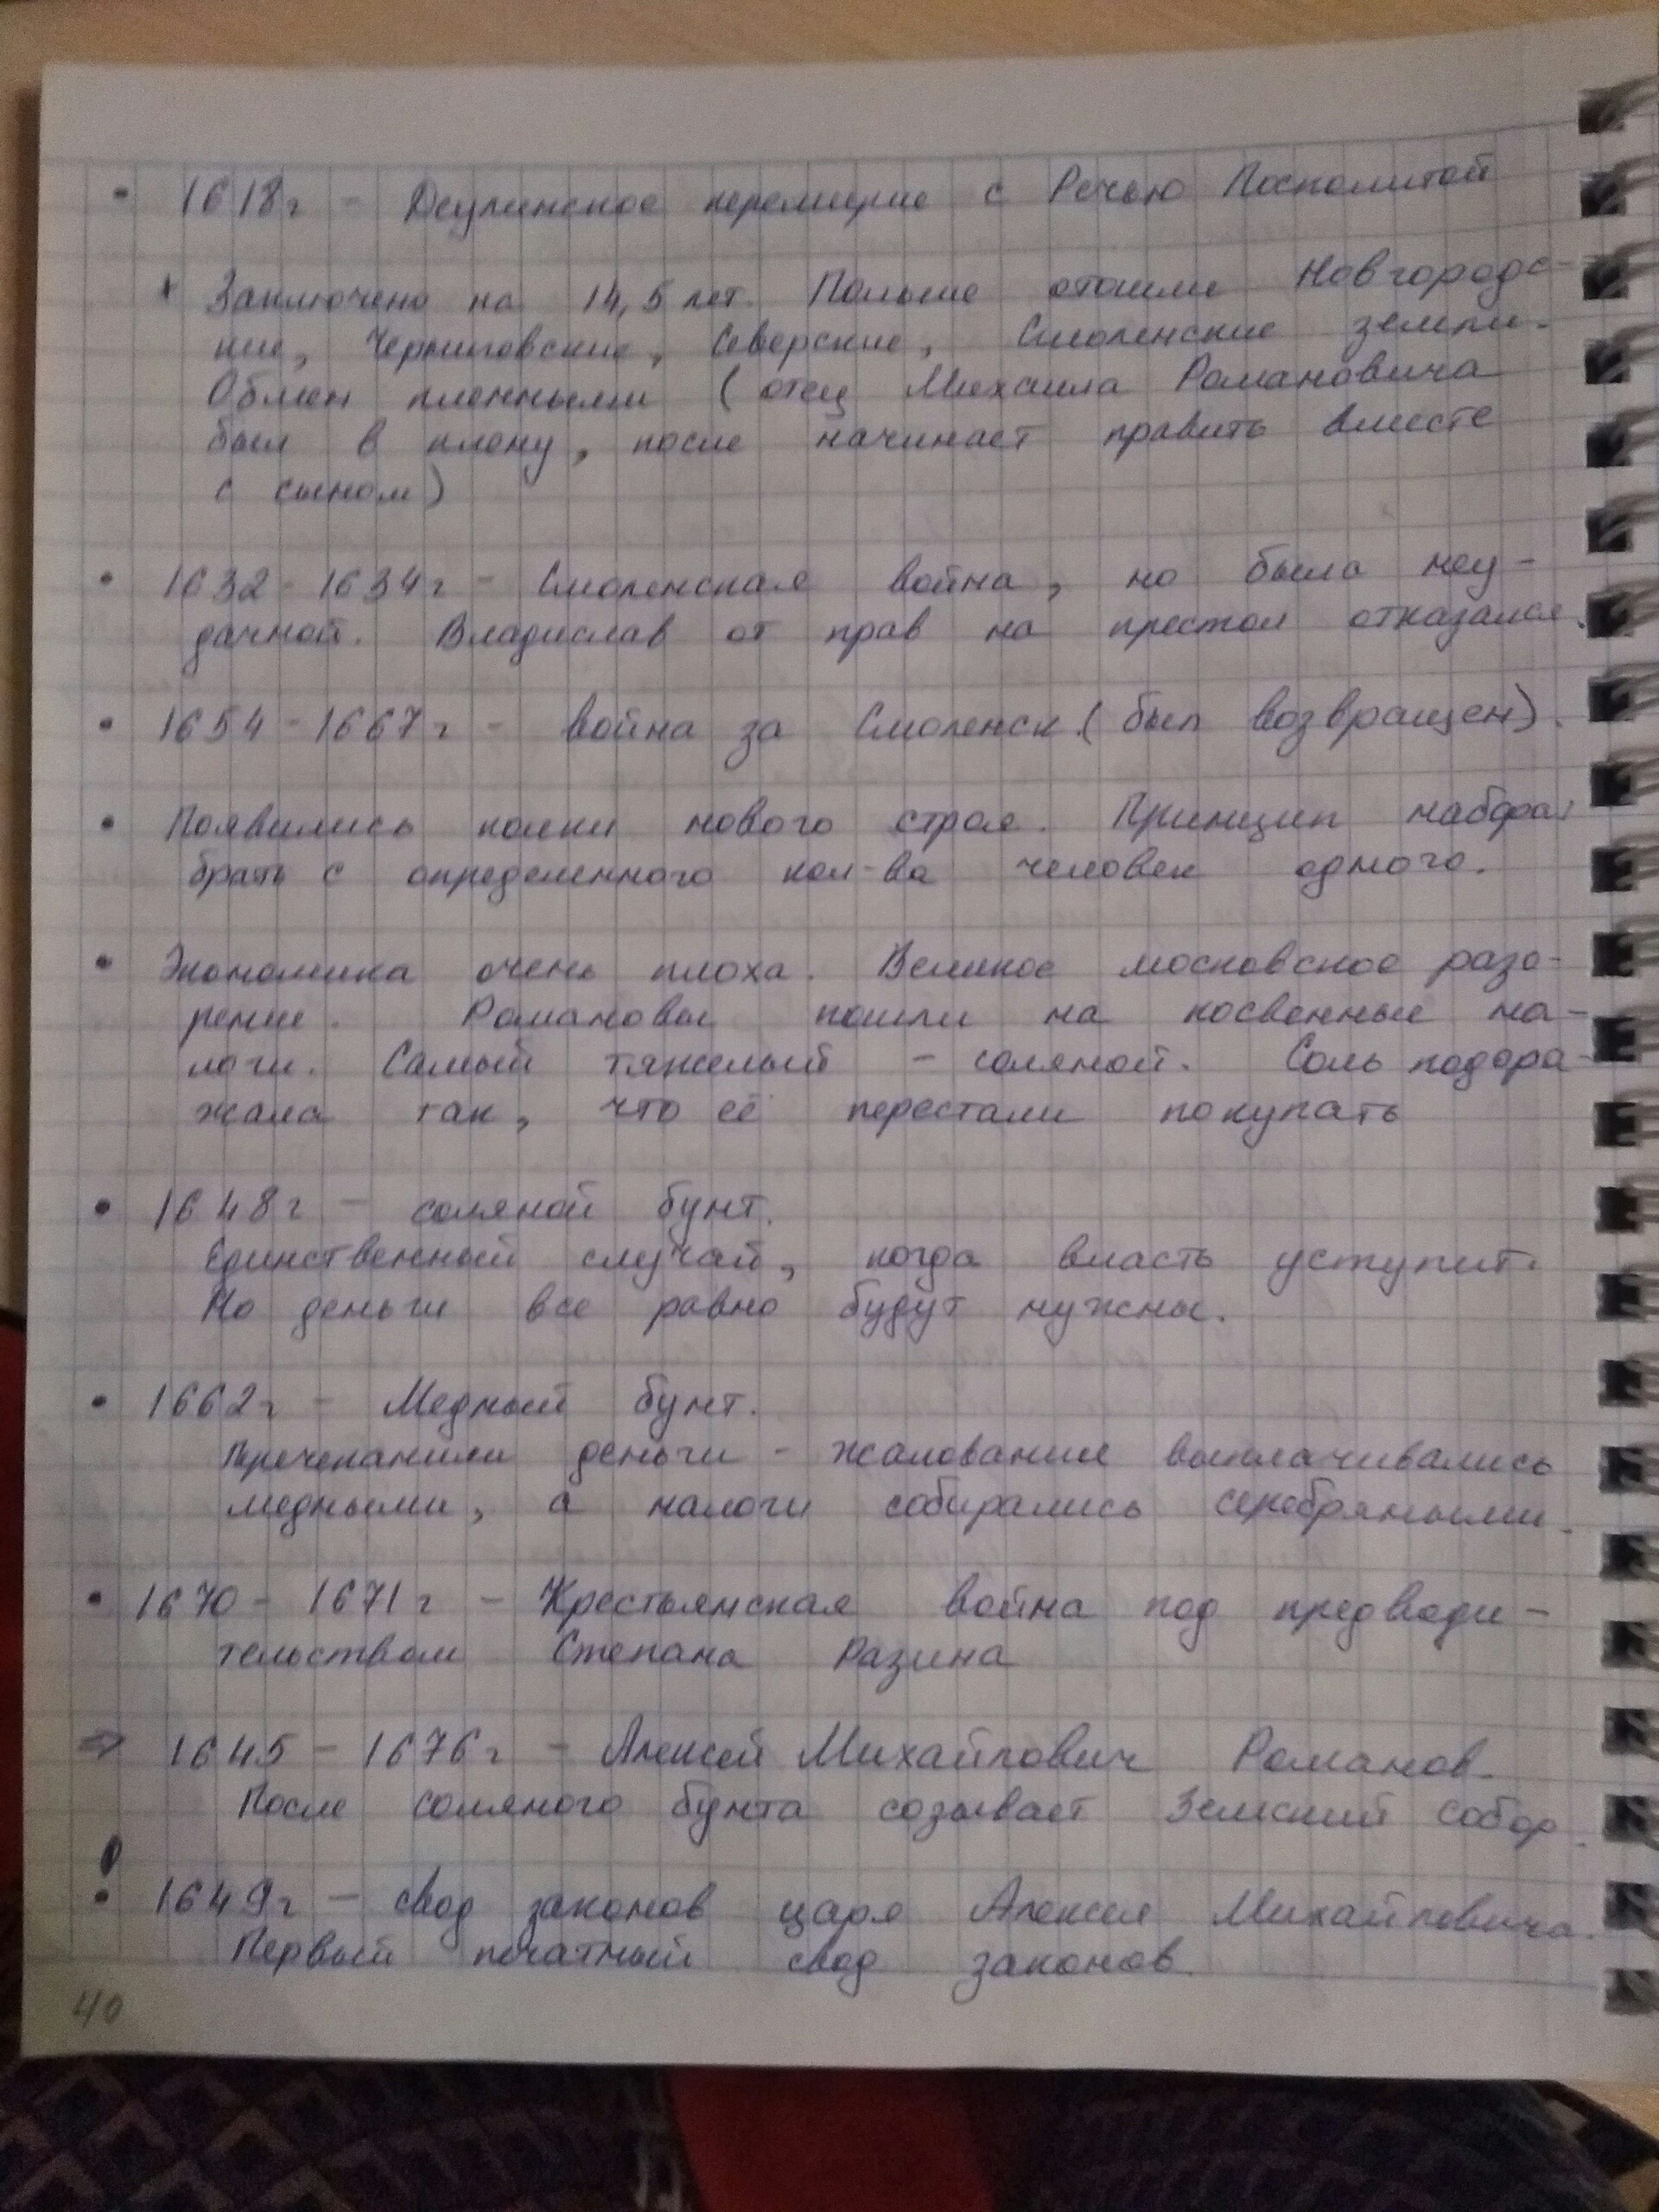 • 1618г - Деулинское перемирие с Речью Посполитой
* Заключено на 14,5 лет. Польше отошли Новгородс-
кие, Черниговские, Северские, Смоленские земли.
Обмен пленными (отец Михаила Романовича
был в плену, после начинает править вместе
с сыном)
• 1632 - 1634г - Смоленская война, но была неу-
дачной. Владислав от прав на престол отказался.
• 1654 - 1667г - война за Смоленск (был возвращен).
• Появились полки нового строя. Принцип набора:
брать с определенного кол-ва человек одного.
• Экономика очень плоха. Великое московское разо-
рение. Романовы пошли на косвенные на-
логи. Самый тяжелый - соляной. Соль подора-
жала так, что её перестали покупать
• 1648г - соляной бунт.
Единственный случай, когда власть уступит.
Но деньги все равно будут нужны.
• 1662г - Медный бунт.
Перечеканили деньги - жалование выплачивались
медными, а налоги собирались серебряными.
• 1670 - 1671г - Крестьянская война под предводи-
тельством Степана Разина
⇒ 1645 - 1676г - Алексей Михайлович Романов.
После соляного бунта созывает Земский собор.
! • 1649г - свод законов царя Алексея Михайловича.
Первый печатный свод законов.
40